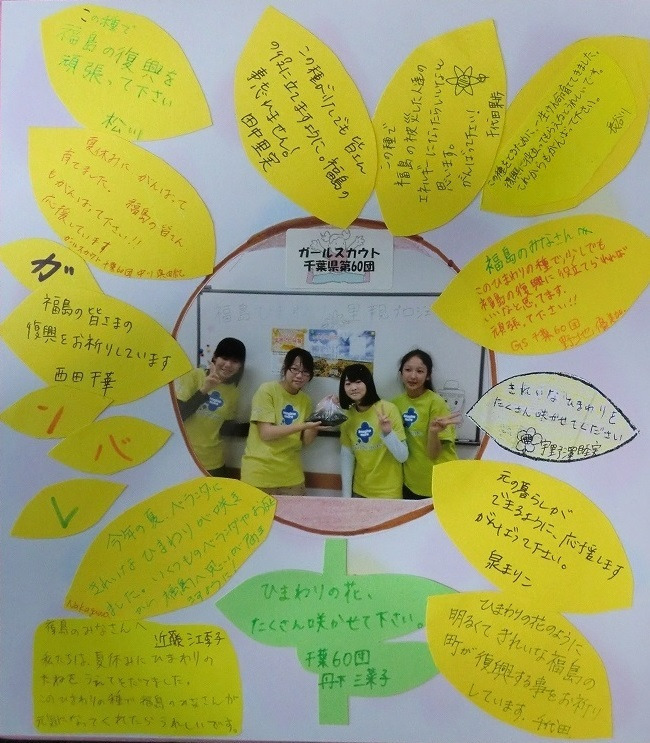 この種で
福島の復興を
頑張って下さい
松川
この種が少しでも皆さん
の役に立てますように。福島の
事忘れません!
田中里実
この種で
福島の被災した人達の
エネルギーになったらいいなと
思います。
がんばって下さい!
千代田果歩
この種を
復興に
これからもがんばって下さい。
長谷川
夏休みに がんばって
育てました。 福島の皆さん
もがんばって下さい!!
応援しています
ガールスカウト千葉60団 中川
ガールスカウト
千葉県第60団
福島のみなさんへ
このひまわりの種で少しでも
福島の復興に役立てられれば
いいなと思ってます。
頑張って下さい!!
GS 千葉60団
ガ
福島の皆さまの
復興をお祈りしています
西田千華
ン
バ
レ
福島
きれいなひまわりを
たくさん咲かせてください
宇野澤
今年の夏、ベランダに
きれいなひまわりが咲き
ました。いくつものベランダやお庭
から福島へ思いが届き
ますように!
Nakagawa
元の暮らしが
できるように、応援します
がんばって下さい。
泉まりン
ひまわりの花、
たくさん咲かせて下さい。
千葉60団
丹下 三葉子
福島のみなさんへ
近藤江莉子
私たちは、夏休みにひまわりの
たねをうえてそだてました。
このひまわりの種で福島のみなさんが
元気になってくれたらうれしいです。
ひまわりの花のように
明るくてきれいな福島の
町が復興する事をお祈り
しています。千代田